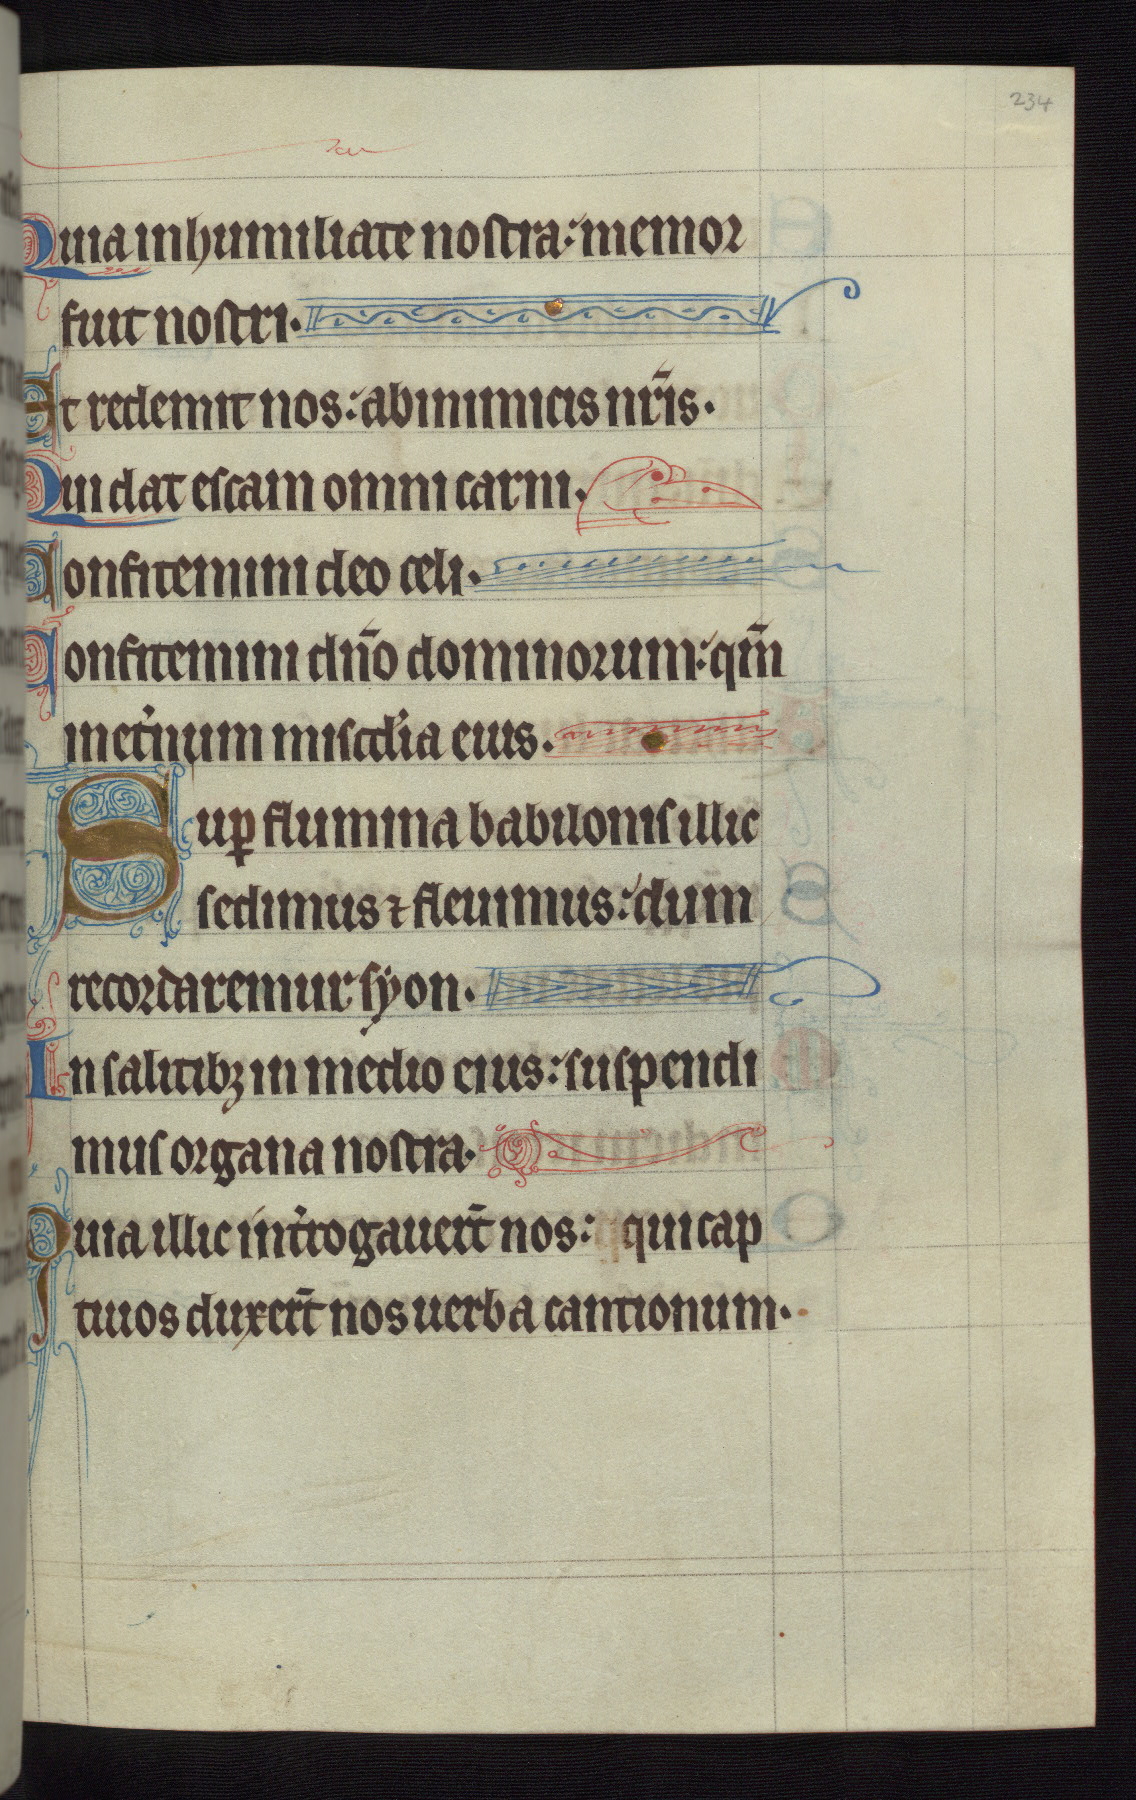 234
Quia in humiliate nostra: memor
fuit nostri.
Et redemit nos: ab inimicis nr̄is.
Qui dat escam omni carni.
Confitemini deo celi.
Confitemini dn̄o dominorum: qm̄
in et̓num misc̄dia eius.
Sup̱ flumina babilonis illic
sedimus ⁊ fleuimus: dum
recordaremur syon.
In salicibꝫ in medio eius: suspendi
mus organa nostra.
Quia illic int̓rogauer̄t nos: qui cap
tiuos duxer̄t nos uerba cantionum.